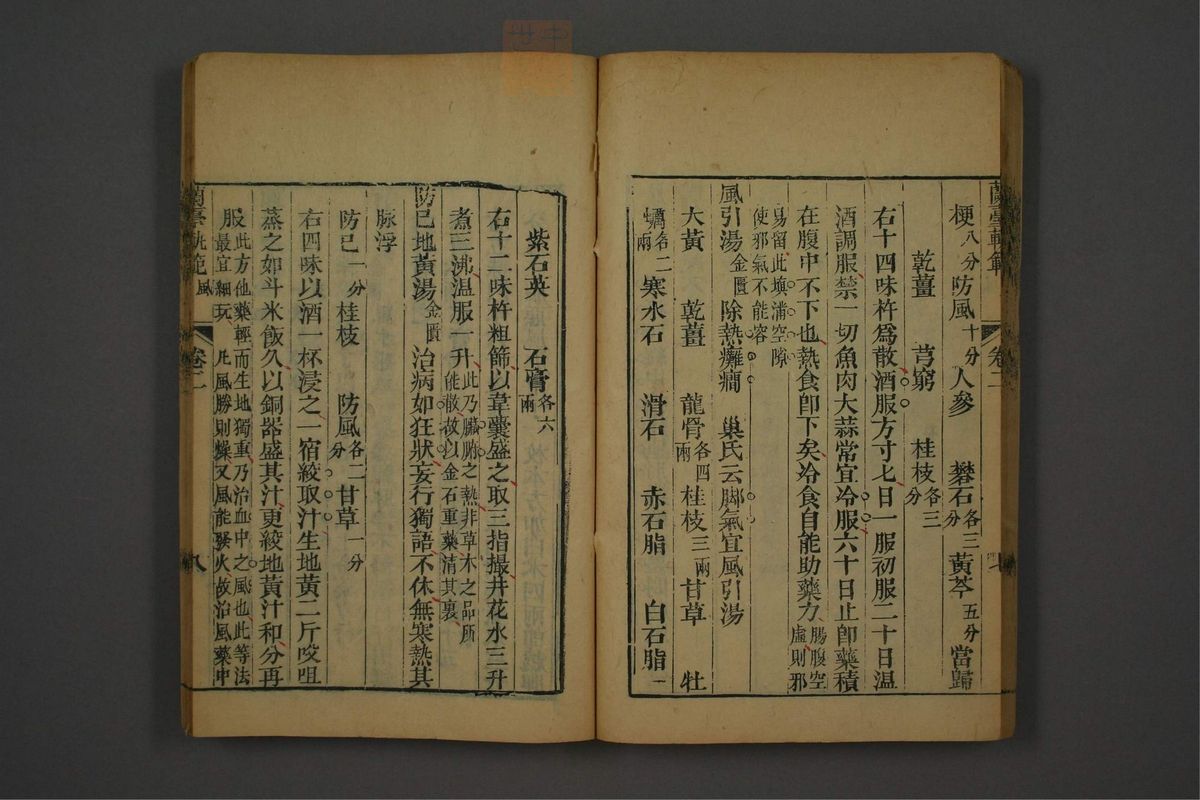 蘭臺軌範 卷二 七
梗八分防風十分人參 礬石各三分黃芩五分當歸
乾薑 芎窮 桂枝各三分
右十四味杵為散酒服方寸匕日一服初服二十日溫
酒調服禁一切魚肉大蒜常宜冷服六十日止卽藥積
在腹中不下也熱食卽下矣冷食自能助藥力腸腹空虛則邪
易留此填滿空隙使邪氣不能容
風引湯金匱 除熱癱癎 巢氏云腳氣宜風引湯
大黃 乾薑 龍骨各四兩桂枝三兩甘草 牡
蠣各二兩寒水石 滑石 赤石脂 白石脂
紫石英 石膏各六兩
右十二味杵粗篩以韋囊盛之取三指撮井花水三升
煮三沸溫服一升此乃臟腑之熱非草木之品所能散故以金石重藥清其裏
防已地黃湯金匱 治病如狂狀妄行獨語不休無寒熱其
脉浮
防已一分桂枝 防風各二分甘草一分
右四味以酒一杯浸之一宿絞取汁生地黃二斤㕮咀
蒸之如斗米飯久以銅器盛其汁更絞地黃汁和分再
服此方他藥輕而生地獨重乃治血中之風也此等法最宜細玩 凡風勝則燥又風能發火故治風藥中
蘭臺軌範 風 卷二 八